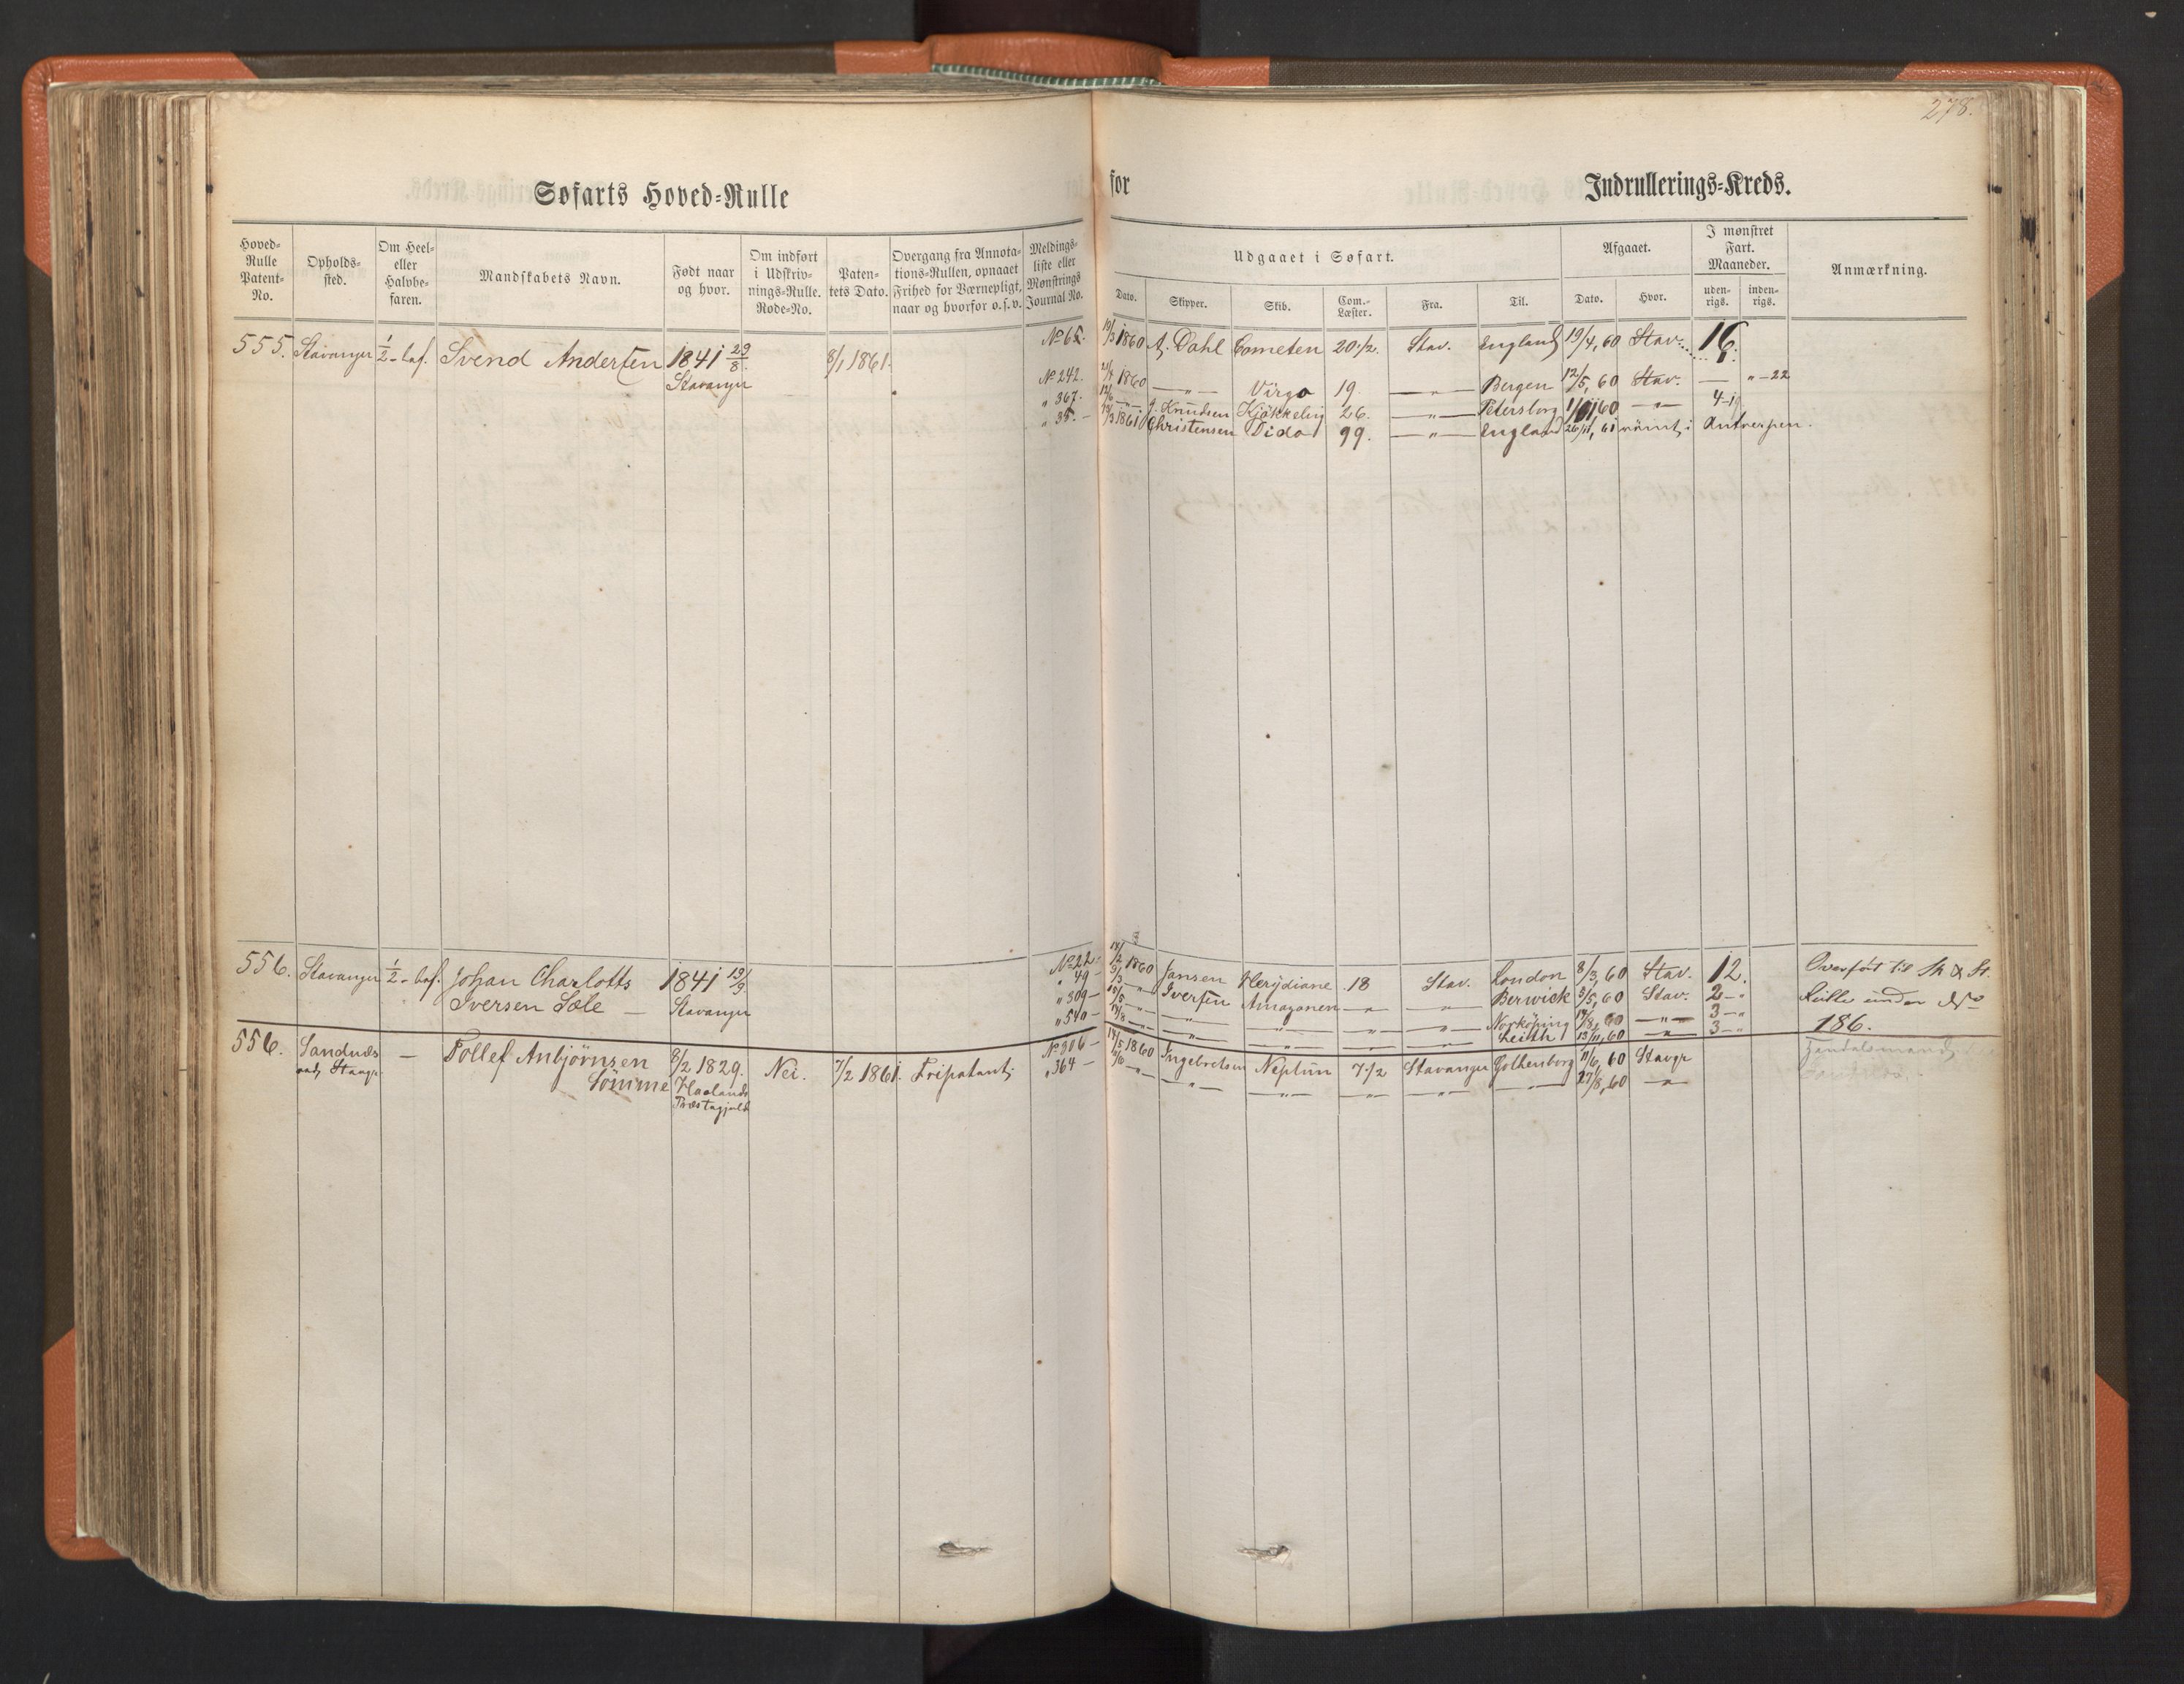 278.
Søfarts Hoved-Rulle for Indrullerings-Kreds.
Hoved-Rulle Patent-No.
Opholds-sted.
Om Heel- eller Halvbe-faren.
Mandskabets Navn.
Født naar og hvor.
Om indført i Udskriv-nings-Rulle. Rode-No.
Paten-tets Dato.
Overgang fra Annota-tions-Rullen, opnaaet Frihed for Værnepligt, naar og hvorfor o.s.v.
Meldings-liste eller Mønstrings Journal No.
Udgaaet i Søfart.
Dato. Skipper. Skib. Com.-Læster. Fra. Til.
Afgaaet.
Dato. Hvor.
I mønstret Fart. Maaneder.
uden-rigs. inden-rigs.
Anmærkning.
555. Stavanger 1/2 - baf. Svend Andersen 1841 29/8 8/1 1861. No 65. 19/3 1860 A. Dahl Cometen 20 1/2. Stav. England 19/4, 60 Stav. 16.
Stavanger No 242. 1860 — " — Virgo 19. — " — Bergen 12/5, 60 Stav. — " - 22
" 367. — " — J. Knudsen Kjøkkelig 26. — " — Petersborg 60 — " — 4 - 19
" 35. — 1861 Christensen Dido 99. — " — England 26/11, 61 römt i Antverpen.
556. Stavanger 1/2 - baf. Johan Charlotts 1841 19/9. No 22 - 1860 Jansen 18 Stav. London 8/3, 60 Stav. 12. Overført til
Iversen Sole — Stavanger " 49 - — " — Iversen Amazonen — " — — " — Berwick 3/5, 60 Stav. 2 - " Rulle under No
" 309 - — " — — " — — " — — " — — " — Norköping 60 — " — 3 - " 186.
" 540 - — " — — " — — " — — " — — " — Leith 13/11, 60 — " — 3 - "
556. Sandnæs — Tollef Anbjørnsen 8/2 1829. Nei. 7/2 1861. Fripatent No 306 - 1860 Ingebretsen Neptun 7 1/2 Stavanger Gothenborg 11/6, 60 Stavgr
ved Stavgr Sömme Haalands Præstegjeld " 364 - — " — — " — — " — — " — — " — — " — 27/8, 60 — " —